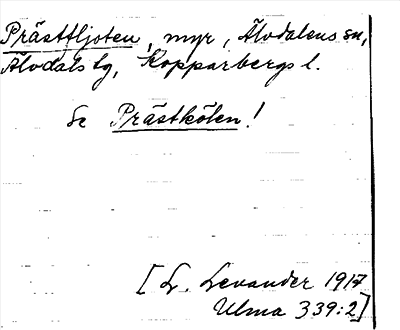 Prästfljoten, myr, Älvdalens sn,
Älvdals tg, Kopparbergs l.
Se Prästkölen!
[L. Levander 1917
Ulma 339:2]